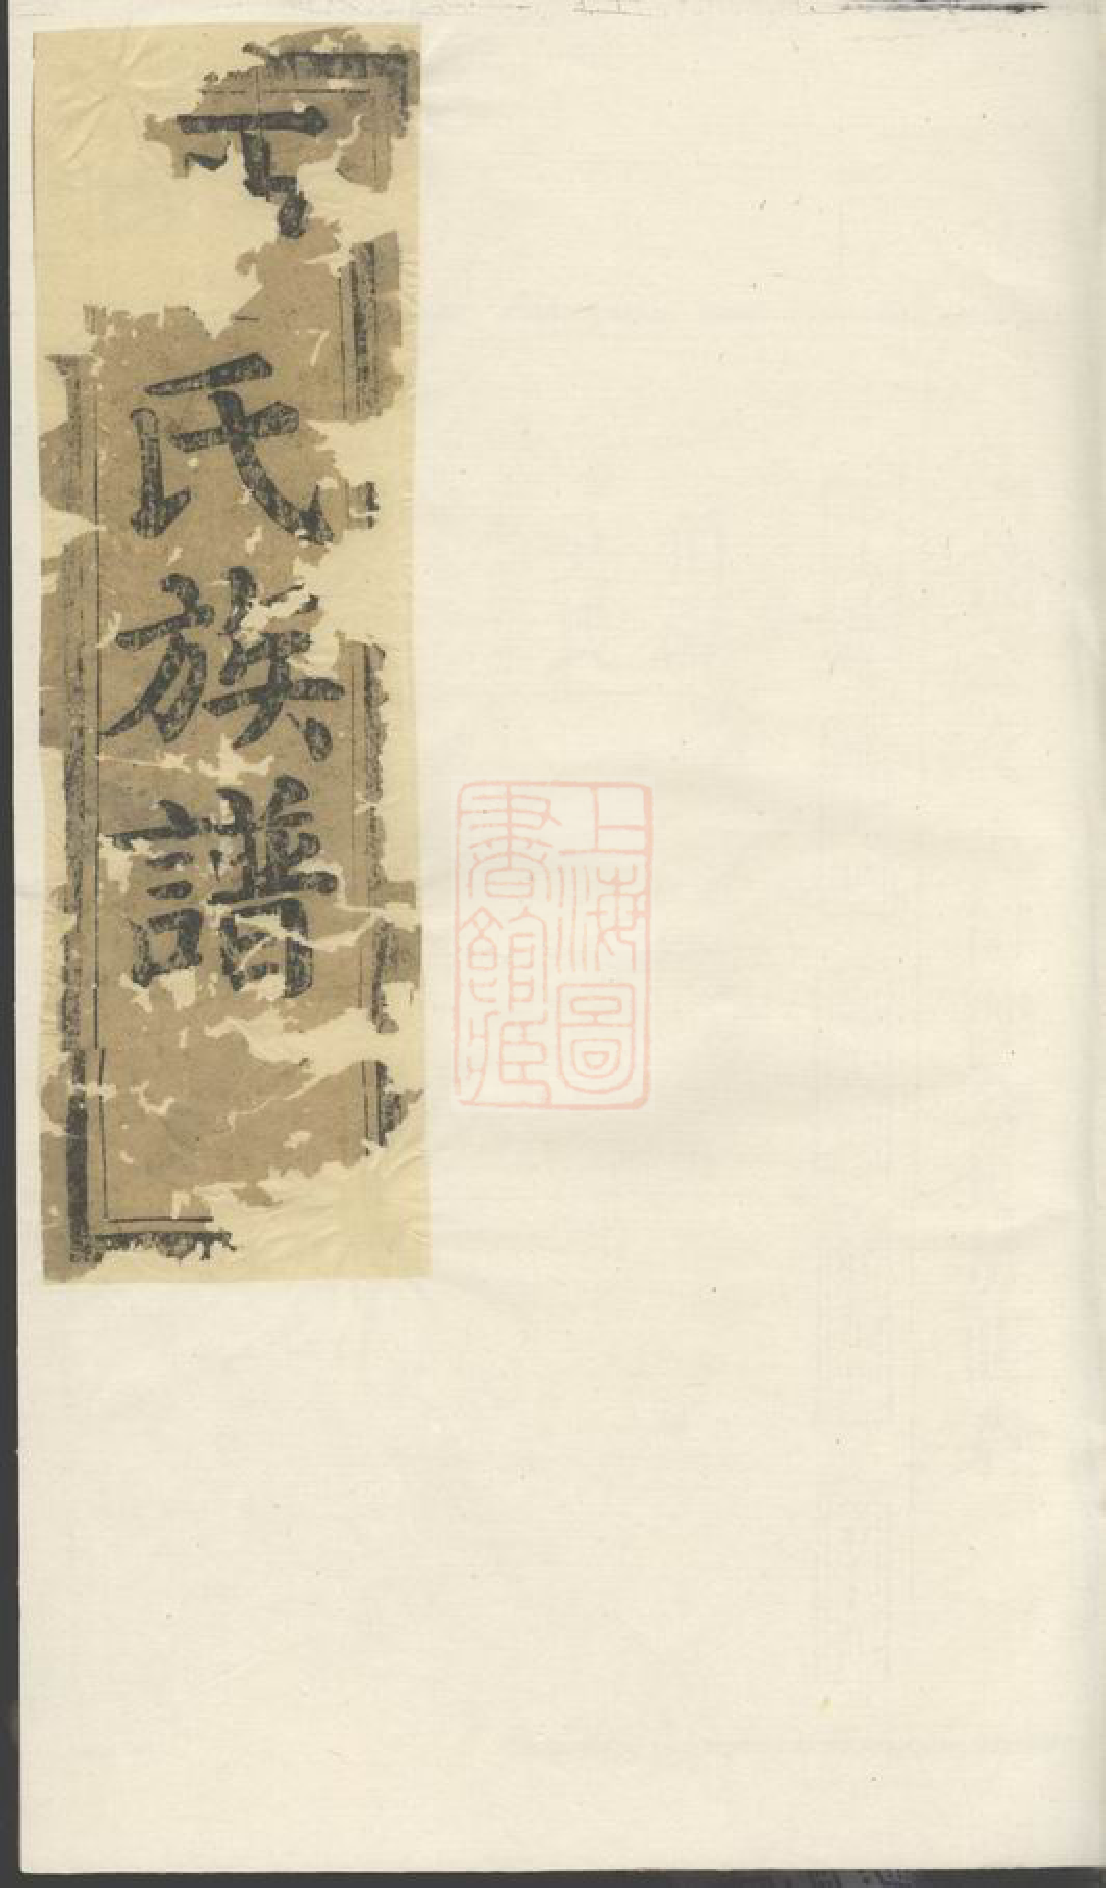 氏族譜
上海圖
書館藏